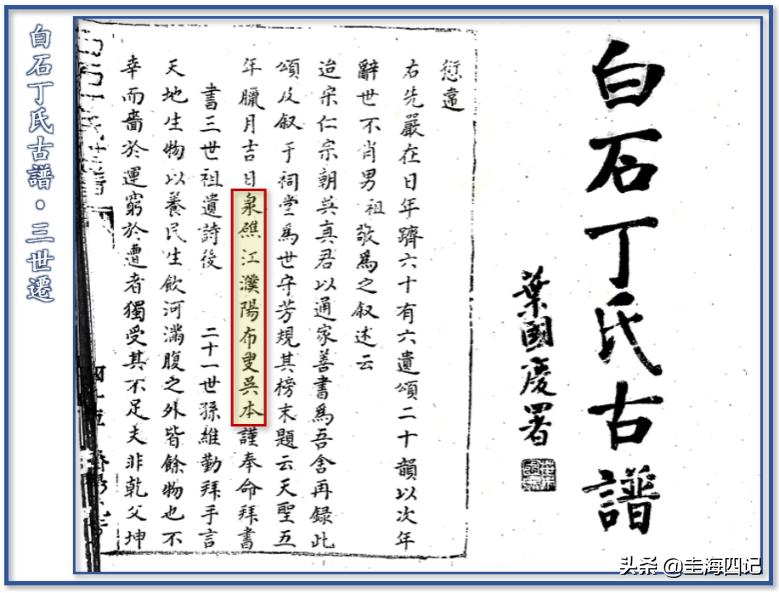 白石丁氏古譜·三世遷
白石丁氏古譜
葉國慶署
愆違
右先嚴在日年躋六十有六遺頌二十韻以次年
辭世不肖男祖敬為之叙述云
迨宋仁宗朝吳真君以通家善書為吾舍再録此
頌及叙于祠堂為世守芳規其榜末題云天聖五
年臘月吉日泉礁江濮陽布叟吳本謹奉命拜書
書三世祖遺詩後 二十一世孫維勤拜手言
天地生物以養民生飲河滿腹之外皆餘物也不
幸而嗇於運窮於遭者獨受其不足夫非乾父坤
头条 @圭海四记